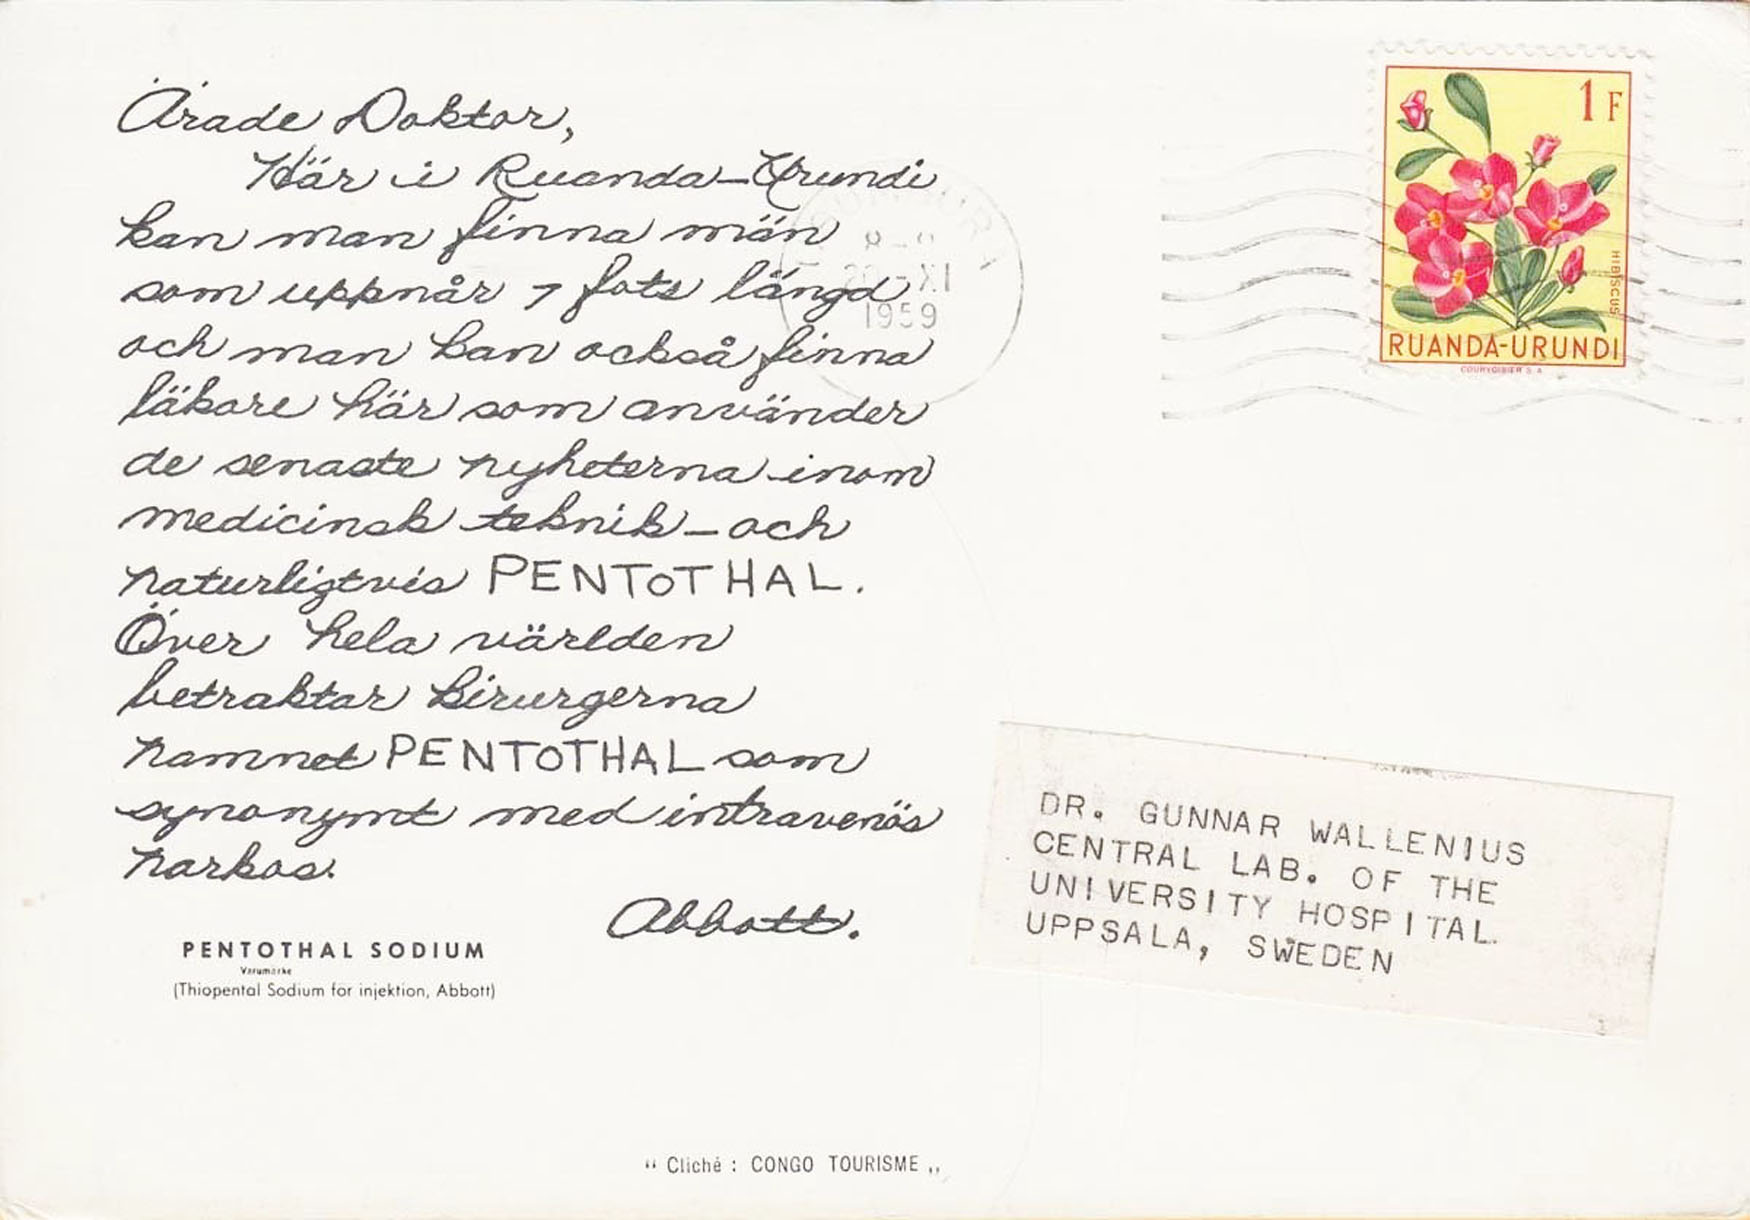 Ärade Doktor,
Här i Ruanda-Urundi
kan man finna män
som uppnår 7 fots längd
och man kan också finna
läkare här som använder
de senaste nyheterna inom
medicinsk teknik - och
naturligtvis PENTOTHAL.
Över hela världen
betraktar kirurgerna
namnet PENTOTHAL som
synonymt med intravenös
narkos.
Abbott.
PENTOTHAL SODIUM
Varumärke
(Thiopental Sodium för injektion, Abbott)
8-9
-XI
1959
1 F
HIBISCUS
RUANDA-URUNDI
COURVOISIER S.A.
DR. GUNNAR WALLENIUS
CENTRAL LAB. OF THE
UNIVERSITY HOSPITAL
UPPSALA, SWEDEN
" Cliché : CONGO TOURISME „